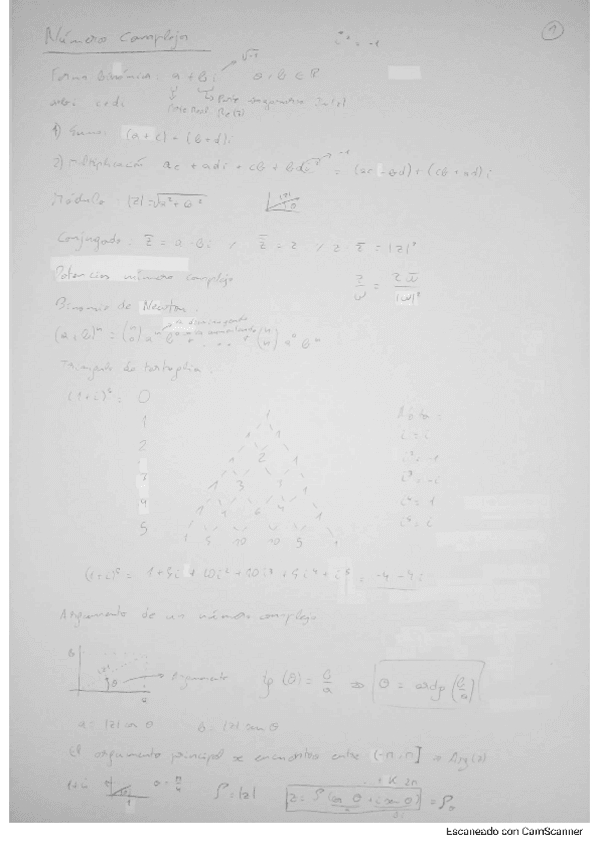 Número complejo
i² = -1
1
Forma Binómica: a + bi √-1 a, b ∈ ℝ
a+bi c+di Parte Real Re(z) Parte imaginaria Im(z)
1) Suma: (a+c) + (b+d)i
2) Multiplicación ac + adi + cb + bdi² -1 = (ac - bd) + (cb + ad)i
Módulo: |z| = √a² + b²
Conjugado: z̄ = a - bi / z̄ = z / z · z̄ = |z|²
Potencias número complejo
z/w = z w̄/|w|²
Binomio de Newton:
Triángulo de tartaglia:
0
1 1
2 1 2 1
3 1 3 3 1
4 1 4 6 4 1
5 1 5 10 10 5 1
Nota:
i = i
i² = -1
i³ = -i
i⁴ = 1
i⁵ = i
= -4 - 4i
Argumento de un número complejo
b |z| θ a Argumento
tg (θ) = b/a ⇒ θ = arctg (b/a)
a = |z| cos θ
El argumento principal se encuentra entre (-π, π] = Arg(z)
1+i
ρ = |z|
Escaneado con CamScanner